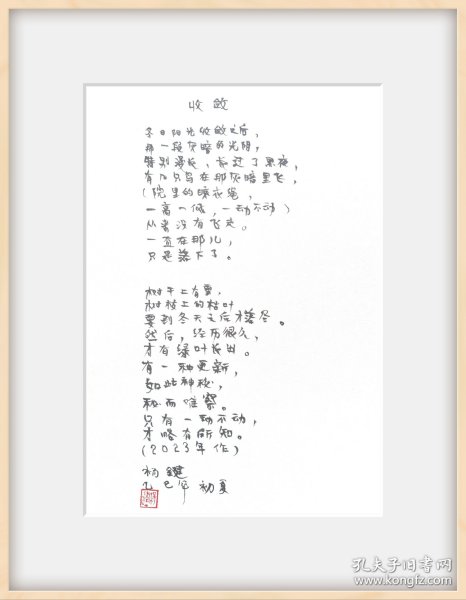 收敛
冬日阳光收敛之后，
那一段灰暗的光阴，
特别漫长，长过了黑夜，
有几只鸟在那灰暗里飞，
（院里的晾衣绳，
一高一低，一动不动）
从来没有飞走。
一直在那儿，
只是落下了。
树干上有雪，
树枝上的枯叶
要到冬天之后才落尽。
然后，经历很久，
才有绿叶长出。
有一种更新，
如此神秘，
秘而难察。
只有一动不动，
才略有所知。
（2023年作）
杨键
乙巳年 初夏
孔夫子旧书网
www.kongfz.com